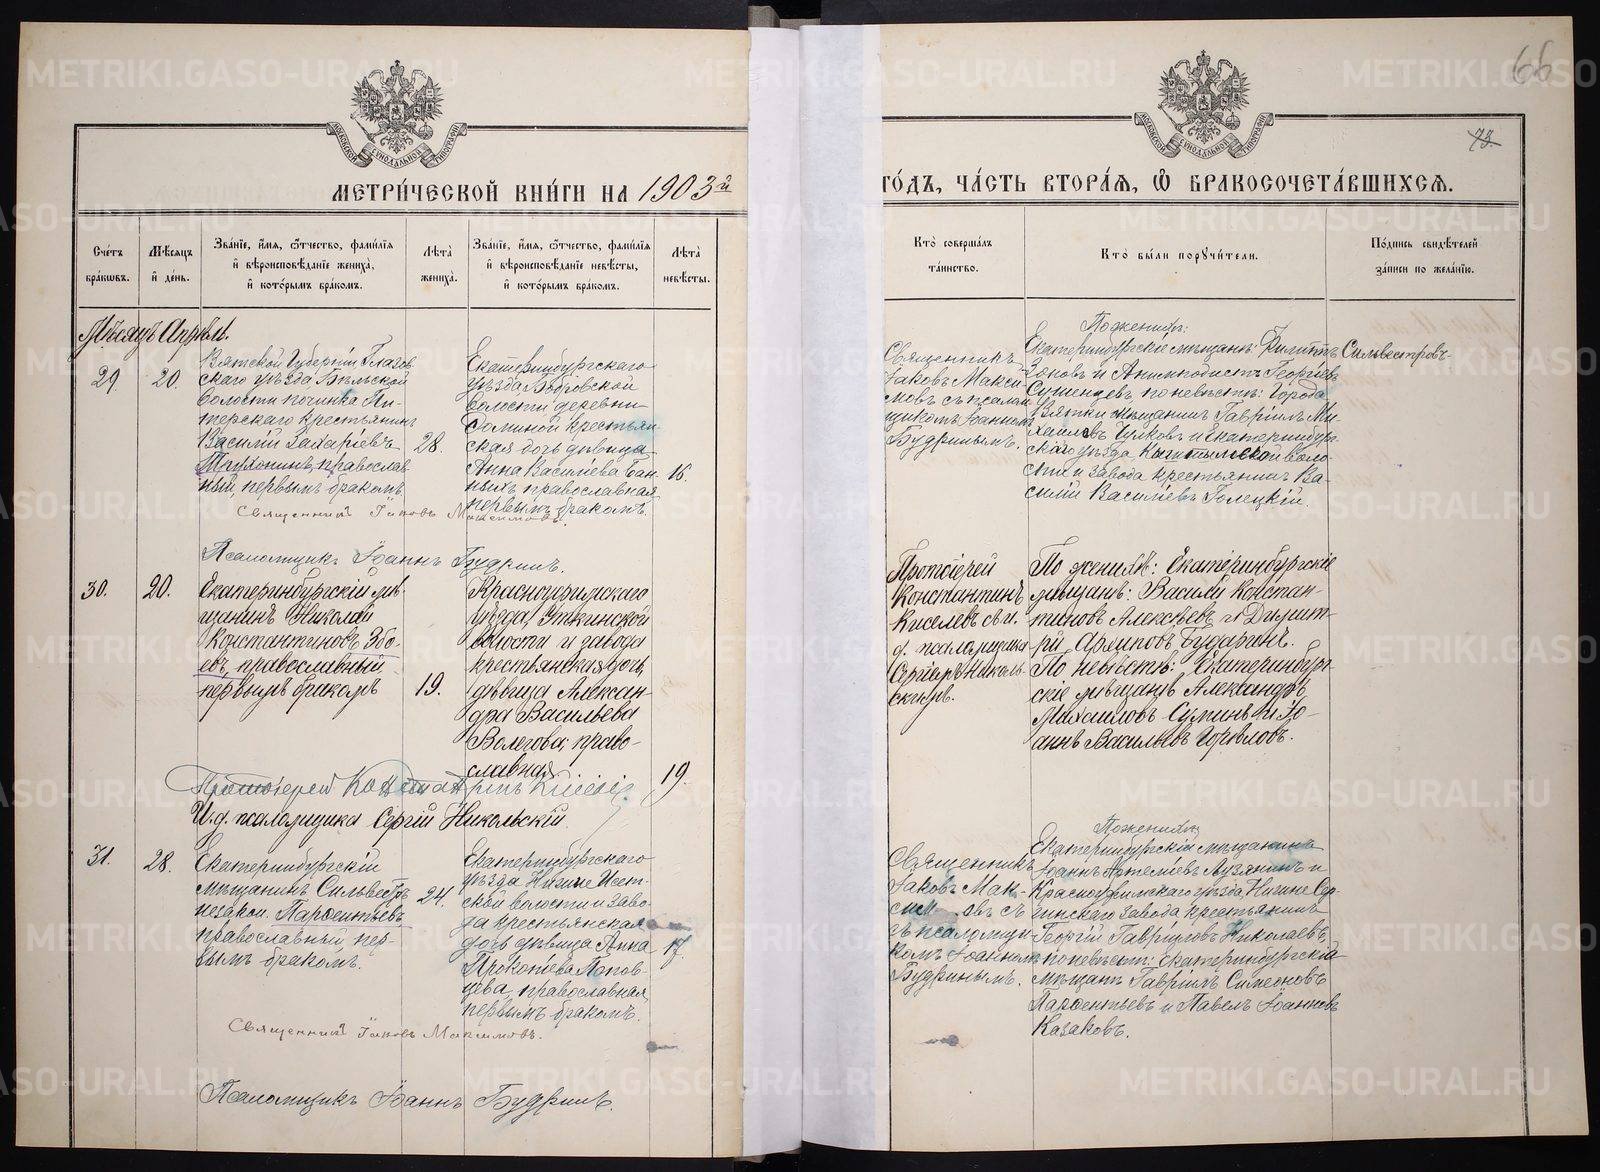 66
73.
МЕТРИ́ЧЕСКОЙ КНИ́ГИ НА 1903й
ГО́ДЪ, ЧА́СТЬ ВТОРА́Я, Ѽ БРАКОСОЧЕТА́ВШИХСЯ.
Сче́тъ бра́кѡвъ.
Мѣ́сяцъ и҆ де́нь.
Зва́нїе, и҆́мя, ѻ҆́тчество, фами́лїя и҆ вѣроисповѣ́данїе жениха̀, и҆ кото́рымъ бра́комъ.
Лѣта̀ жениха̀.
Зва́нїе, и҆́мя, ѻ҆́тчество, фами́лїя и҆ вѣроисповѣ́данїе невѣ́сты, и҆ кото́рымъ бра́комъ.
Лѣта̀ невѣ́сты.
Кто̀ соверша́лъ та́инство.
Кто̀ бы́ли порꙋчи́тели.
По́дпись свидѣ́телей за́писи по жела́нїю.
Мѣсяцъ Апрѣль.
29.
20.
Вятской Губерніи Глазов-
скаго уѣзда
волости починка Пи-
терскаго крестьянинъ
Василій Захаріевъ
православ-
ный, первымъ бракомъ.
28.
Екатеринбургскаго
уѣзда Бобровской
волости деревни
Фоминой крестьян-
ская дочь дѣвица
Анна Василіева Бан-
ныхъ, православная
первымъ бракомъ.
16.
Священникъ
Іаковъ Макси-
мовъ съ псалом-
щикомъ Іоанномъ
Будринымъ.
По женихѣ:
Екатеринбургскіе мѣщане: Филиппъ
Зоновъ и Анемподистъ Георгіевъ
по невѣстѣ: Города
Вятки мѣщанинъ Гавріилъ Ми-
хаиловъ Чулковъ и Екатеринбург-
скаго уѣзда Кыштымской воло-
сти и завода крестьянинъ Ва-
силій Василіевъ Голецкій.
Сильвестровъ
Священникъ Іаковъ Максимовъ.
Псаломщикъ Іоаннъ Будринъ.
30.
20.
Екатеринбургскій мѣ-
щанинъ Николай
Константиновъ Збо-
евъ, православный
первымъ бракомъ
19.
Красноуфимскаго
уѣзда, Уткинской
волости и завода
крестьянская дочь,
дѣвица Алексан-
дра Васильева
Волегова; право-
славная
19.
Протоіерей
Константинъ
Киселевъ съ и.
д. псаломщика
Сергіемъ Николь-
скимъ.
По женихѣ: Екатеринбургскіе
мѣщане: Василій Констан-
тиновъ Алексѣевъ и Димит-
рій Архиповъ Бударинъ.
По невѣстѣ: Екатеринбург-
скіе мѣщане Александръ
Михаиловъ и Іо-
аннъ Васильевъ
Протоіерей Константинъ Киселевъ
И. д. псаломщика Сергій Никольскій.
31.
28.
Екатеринбургскій
мѣщанинъ Сильвестръ
незакон. Парѳентьевъ,
православный, пер-
вымъ бракомъ.
24.
Екатеринбургскаго
уѣзда Нижне Исет-
ской волости и заво-
да крестьянская
дочь дѣвица Анна
Прокопіева Попов-
цева, православная
первымъ бракомъ.
17.
Священникъ
Іаковъ Мак-
симовъ съ
псаломщи-
комъ Іоанномъ
Будринымъ.
По женихѣ
Екатеринбургскій мѣщанинъ
Іоаннъ Артеміевъ Лузянинъ и
Красноуфимскаго уѣзда, Нижне Сер-
гинскаго завода крестьянинъ
Георгій Гавріиловъ Николаевъ,
по невѣстѣ: Екатеринбургскій
мѣщан. Гавріилъ Симеоновъ
Парѳентьевъ и Павелъ Іоанновъ
Казаковъ.
Священникъ Іаковъ Максимовъ.
Псаломщикъ Іоаннъ Будринъ.